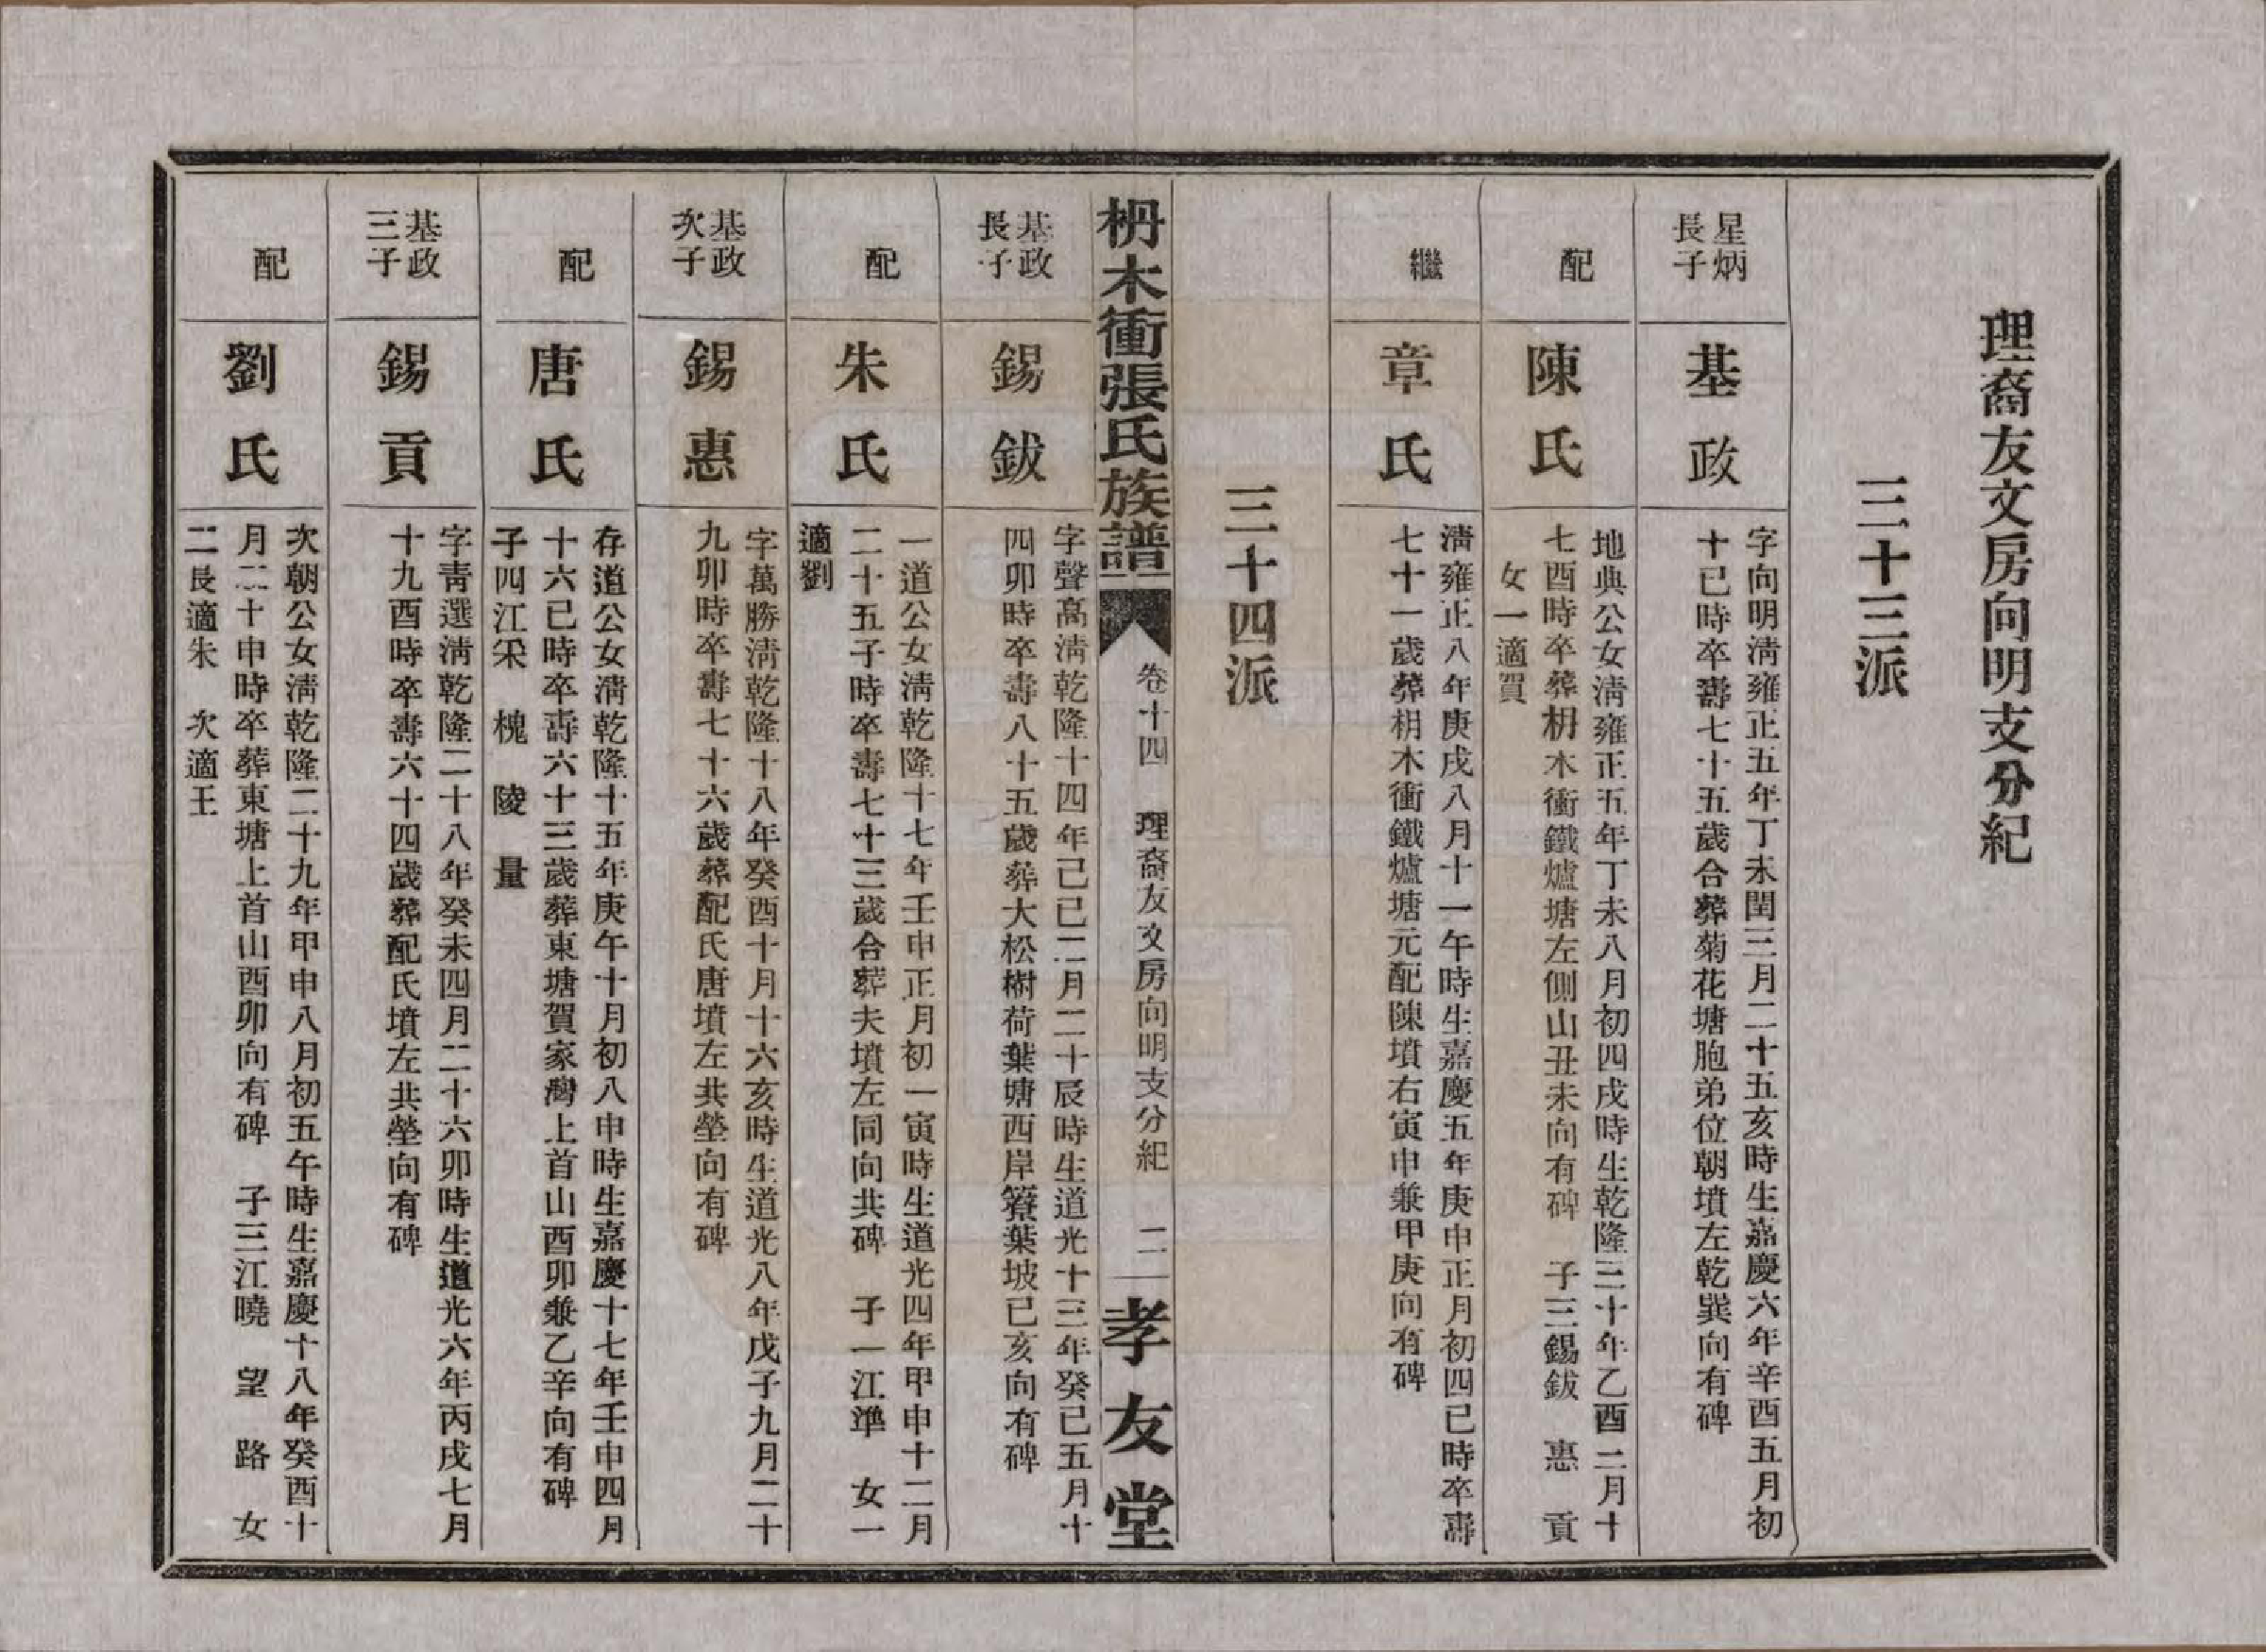 理裔友文房向明支分紀
三十三派
星炳
長子
基政
字向明淸雍正五年丁未閏三月二十五亥時生嘉慶六年辛酉五月初
十巳時卒壽七十五歲合葬菊花塘胞弟位朝墳左乾巽向有碑
配
陳氏
地典公女淸雍正五年丁未八月初四戌時生乾隆三十年乙酉二月十
七酉時卒葬枬木衝鐵爐塘左側山丑未向有碑 子三錫鈸 惠 貢
女一適賀
繼
章氏
淸雍正八年庚戌八月十一午時生嘉慶五年庚申正月初四巳時卒壽
七十一歲葬枬木衝鐵爐塘元配陳墳右寅申兼甲庚向有碑
三十四派
枬木衝張氏族譜
卷十四 理裔友文房向明支分紀 二
孝友堂
基政
長子
錫鈸
字聲高淸乾隆十四年己巳二月二十辰時生道光十三年癸巳五月十
四卯時卒壽八十五歲葬大松樹荷葉塘西岸簝葉坡巳亥向有碑
配
朱氏
一道公女淸乾隆十七年壬申正月初一寅時生道光四年甲申十二月
二十五子時卒壽七十三歲合葬夫墳左同向共碑 子一江準 女一
適劉
基政
次子
錫惠
字萬勝淸乾隆十八年癸酉十月十六亥時生道光八年戊子九月二十
九卯時卒壽七十六歲葬配氏唐墳左共塋向有碑
配
唐氏
存道公女淸乾隆十五年庚午十月初八申時生嘉慶十七年壬申四月
十六巳時卒壽六十三歲葬東塘賀家灣上首山酉卯兼乙辛向有碑
子四江宩 槐 陵 量
基政
三子
錫貢
字靑選淸乾隆二十八年癸未四月二十六卯時生道光六年丙戌七月
十九酉時卒壽六十四歲葬配氏墳左共塋向有碑
配
劉氏
次朝公女淸乾隆二十九年甲申八月初五午時生嘉慶十八年癸酉十
月二十申時卒葬東塘上首山酉卯向有碑 子三江曉 望 路 女
二長適朱 次適王